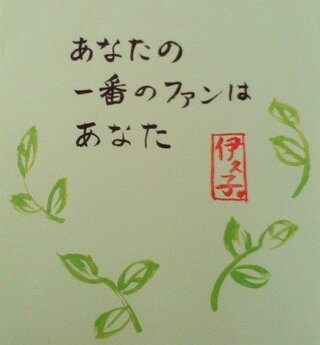 あなたの
一番のファンは
あなた
伊久子